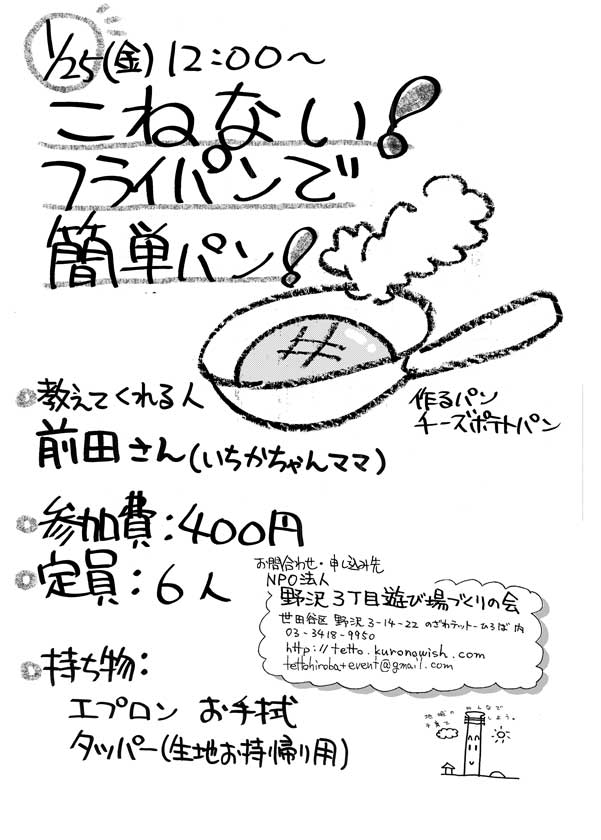 1/25(金)12:00〜
こねない!
フライパンで
簡単パン!
作るパン
チーズポテトパン
教えてくれる人
前田さん(いちかちゃんママ)
参加費:400円
定員:6人
お問合わせ・申し込み先
NPO法人
野沢3丁目遊び場づくりの会
世田谷区 野沢 3-14-22 のざわテットーひろば内
03-3418-9950
http://tetto.kuronowish.com
tettohiroba+event@gmail.com
持ち物:
エプロン お手拭
タッパー(生地お持帰り用)
地域の みんなで
子育て しよう。